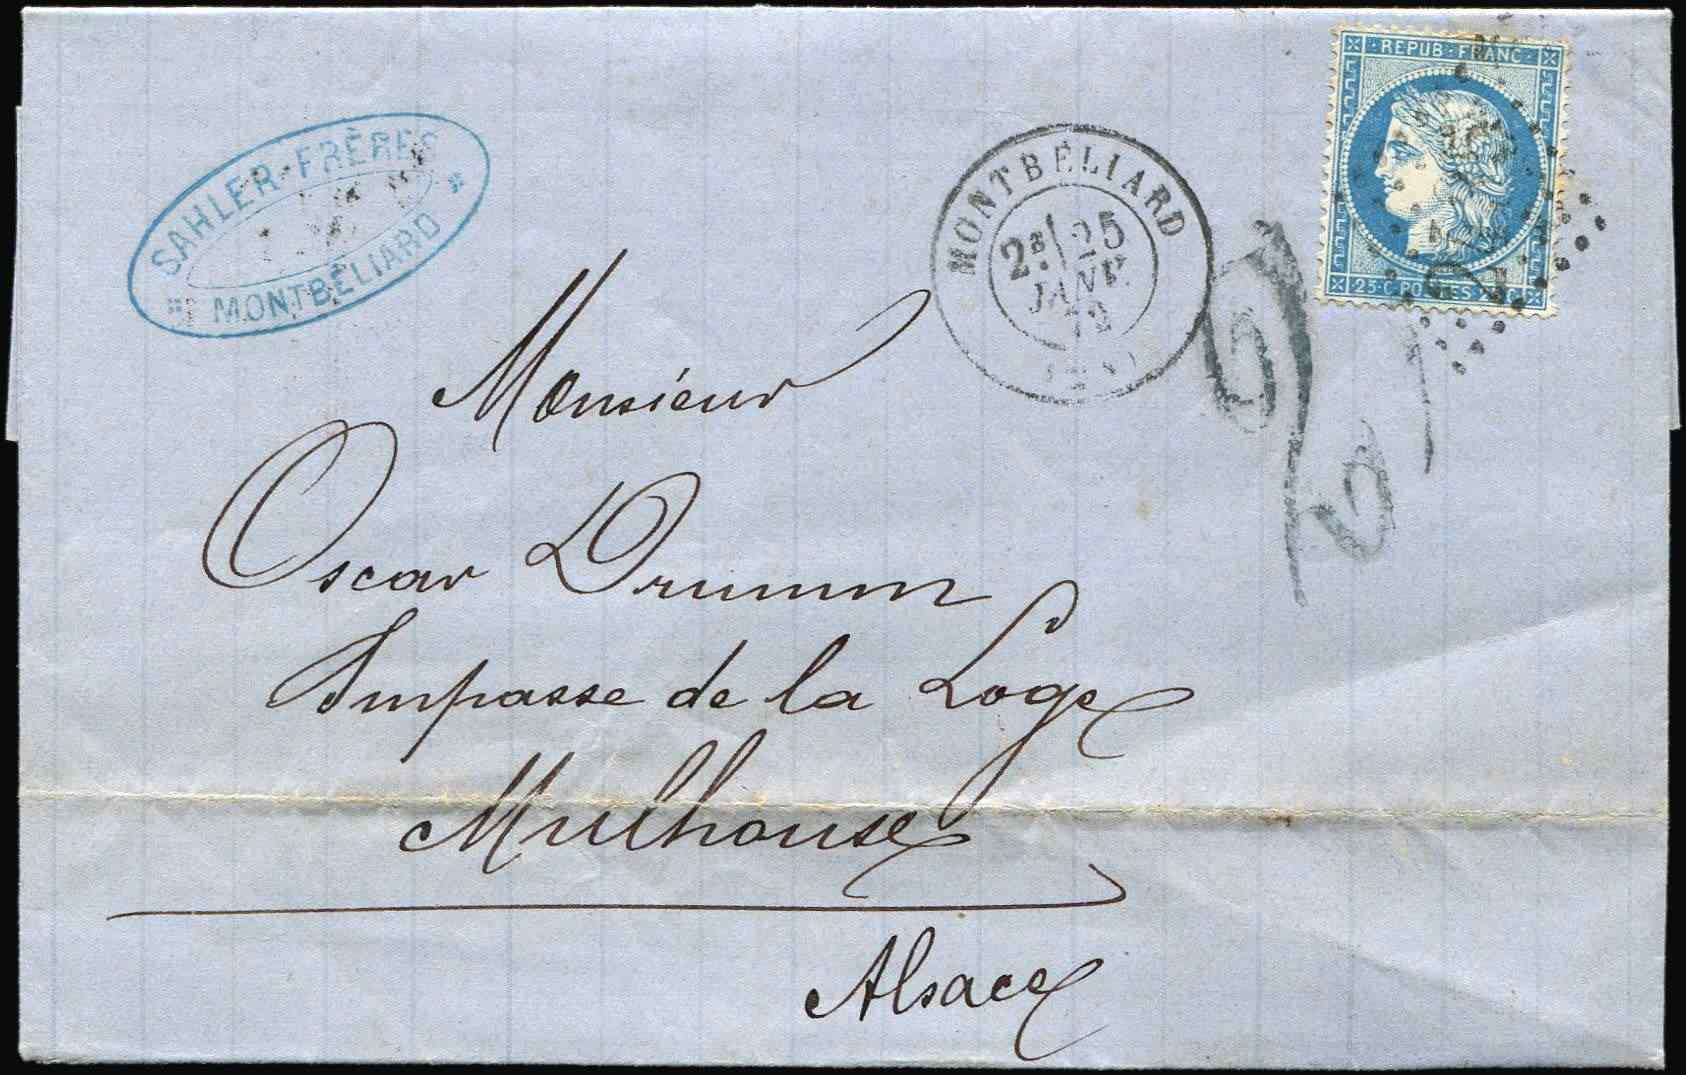 SAHLER-FRÈRES
MONTBÉLIARD
MONTBÉLIARD
2ᴱ 25
JANV.
72
REPUB·FRANC·
25·C·POSTES 25·C·
Monsieur
Oscar Drumm
Impasse de la Loge
Mulhouse
Alsace